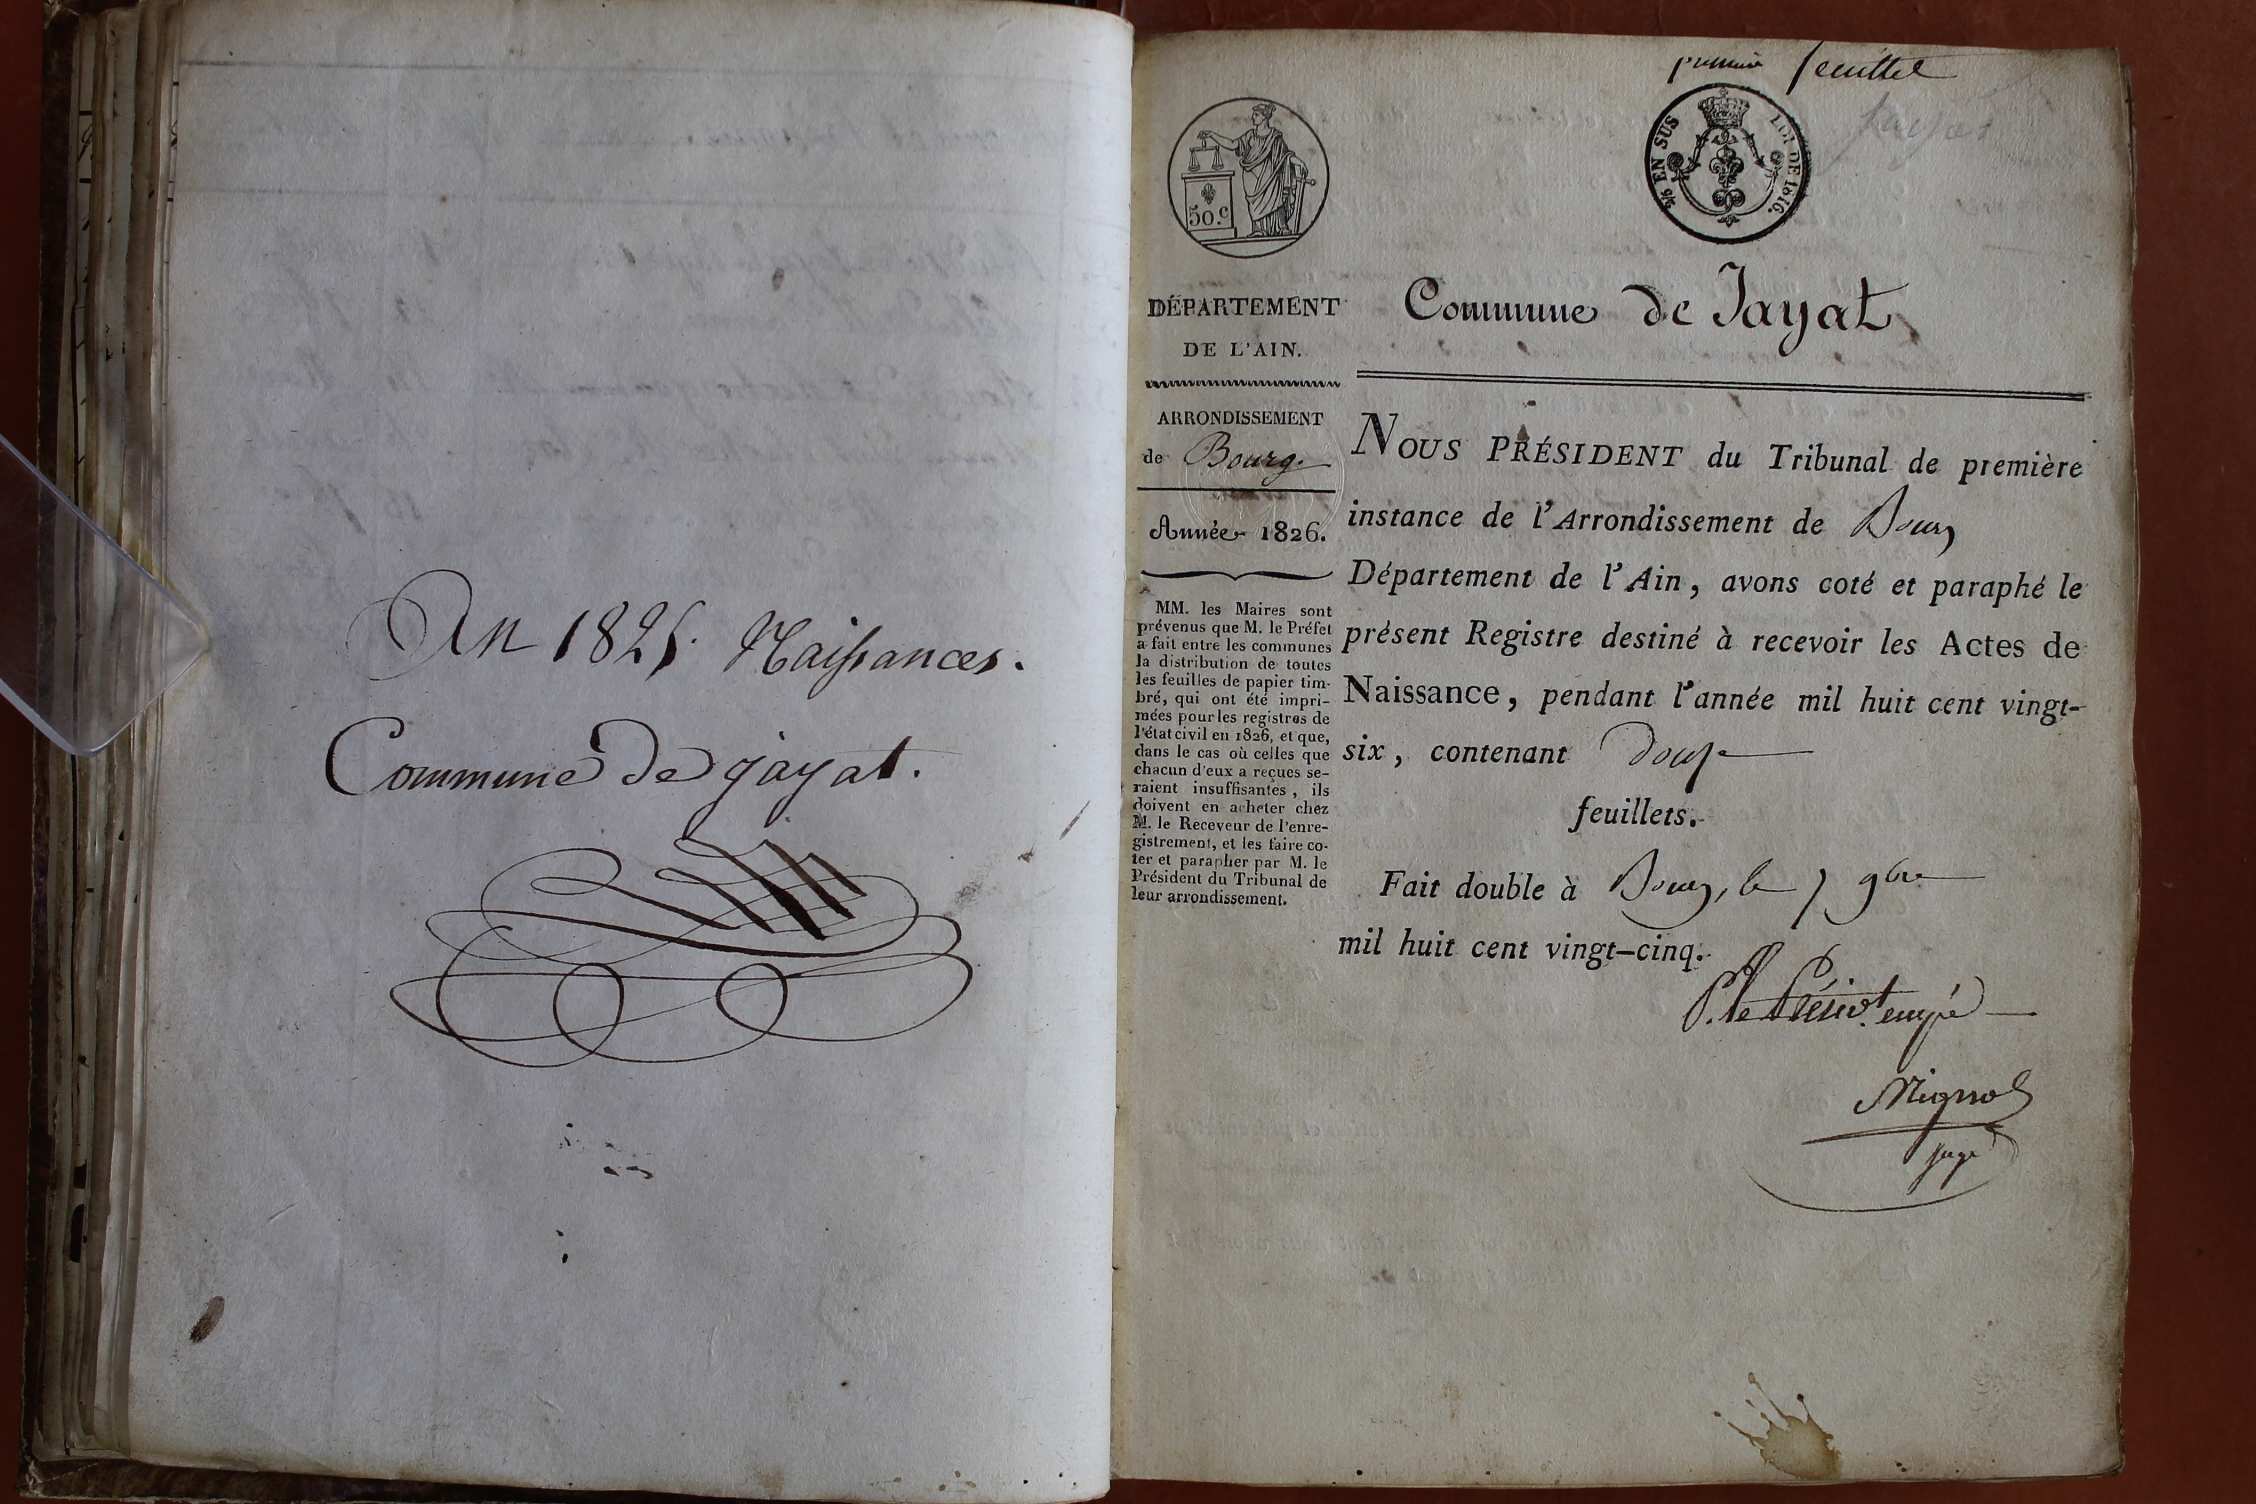 An 1825. Naissances.
Commune de Jayat.
premier feuillet
Jayat
50.c
EN SUS
LOI DE 1816.
DÉPARTEMENT
DE L'AIN.
ARRONDISSEMENT
de Bourg.
Année 1826.
MM. les Maires sont
prévenus que M. le Préfet
a fait entre les communes
la distribution de toutes
les feuilles de papier tim-
bré, qui ont été impri-
mées pour les registres de
l'état civil en 1826, et que,
dans le cas où celles que
chacun d'eux a reçues se-
raient insuffisantes, ils
doivent en acheter chez
M. le Receveur de l'enre-
gistrement, et les faire co-
ter et parapher par M. le
Président du Tribunal de
leur arrondissement.
Commune de Jayat
NOUS PRÉSIDENT du Tribunal de première
instance de l'Arrondissement de Bourg
Département de l'Ain, avons coté et paraphé le
présent Registre destiné à recevoir les Actes de
Naissance, pendant l'année mil huit cent vingt-
six, contenant douze
feuillets.
Fait double à Bourg, le 7 9bre
mil huit cent vingt-cinq.
P. le Présidt. empé
Mignot
juge